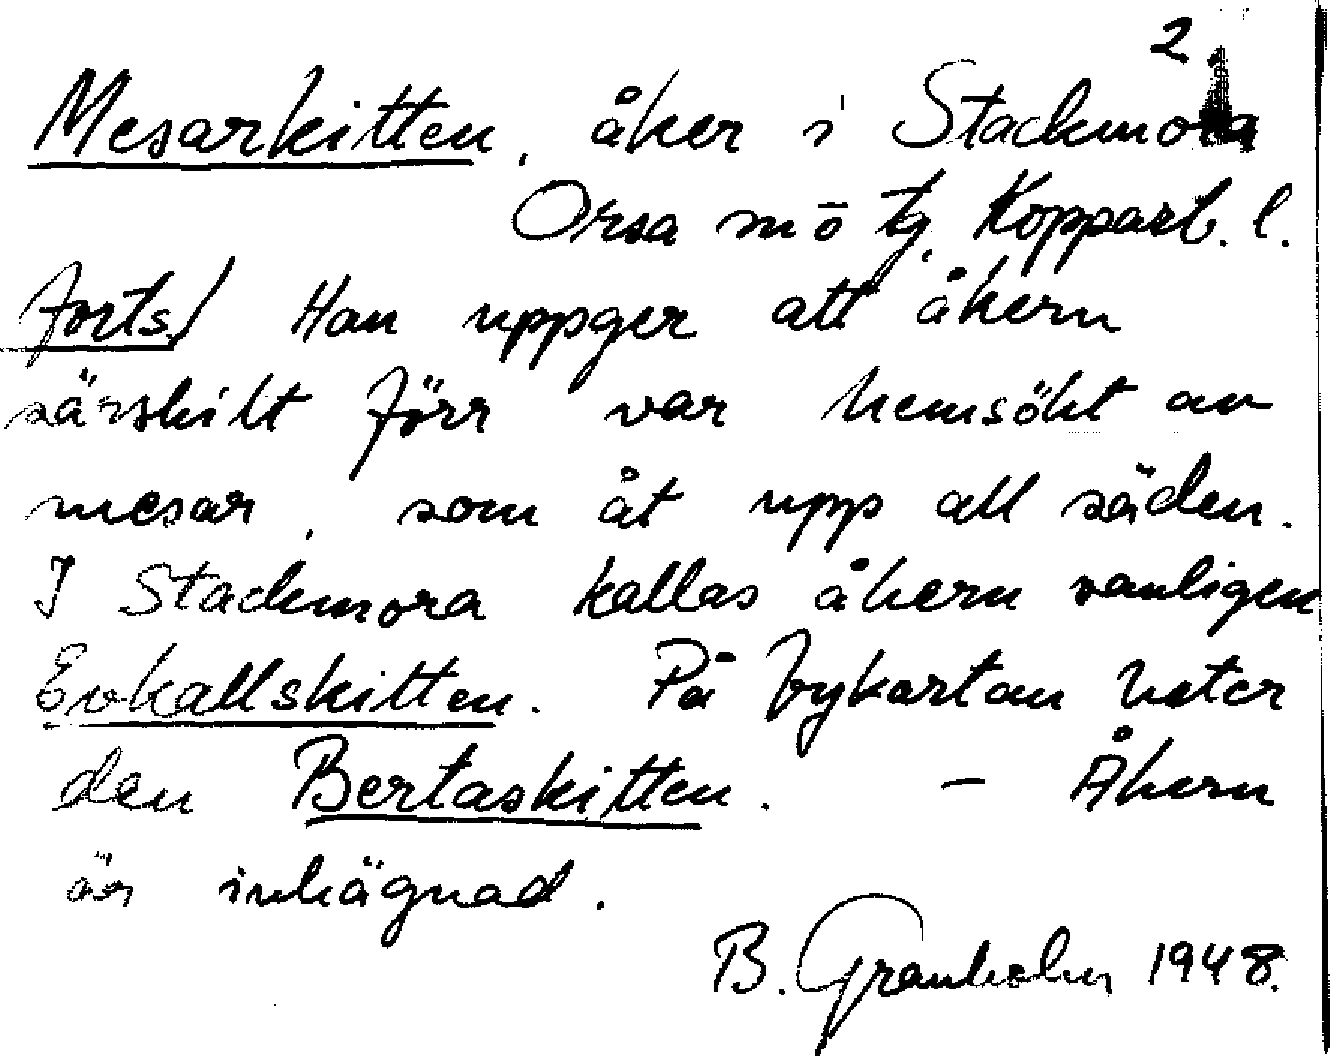 2.
Mesarkitten, åker i Stackmora
Orsa sn ö tg, Kopparb. l.
Forts./ Han uppger att åkern
särskilt förr var hemsökt av
mesar, som åt upp all säden.
I Stackmora kallas åkern vanligen
Evkallskitten. På bykartan heter
den Bertaskitten. - Åkern
är inhägnad.
B. Granholm 1948.